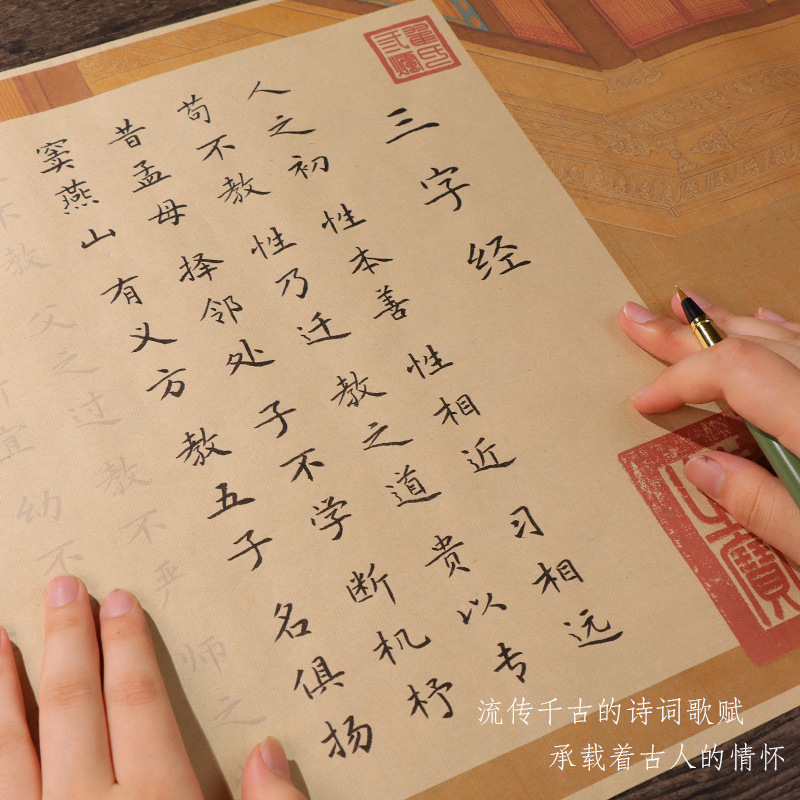 三字经
人之初 性本善 性相近 习相远
苟不教 性乃迁 教之道 贵以专
昔孟母 择邻处 子不学 断机杼
窦燕山 有义方 教五子 名俱扬
不教 父之过 教不严 师之
宜 幼不
寶
流传千古的诗词歌赋
承载着古人的情怀